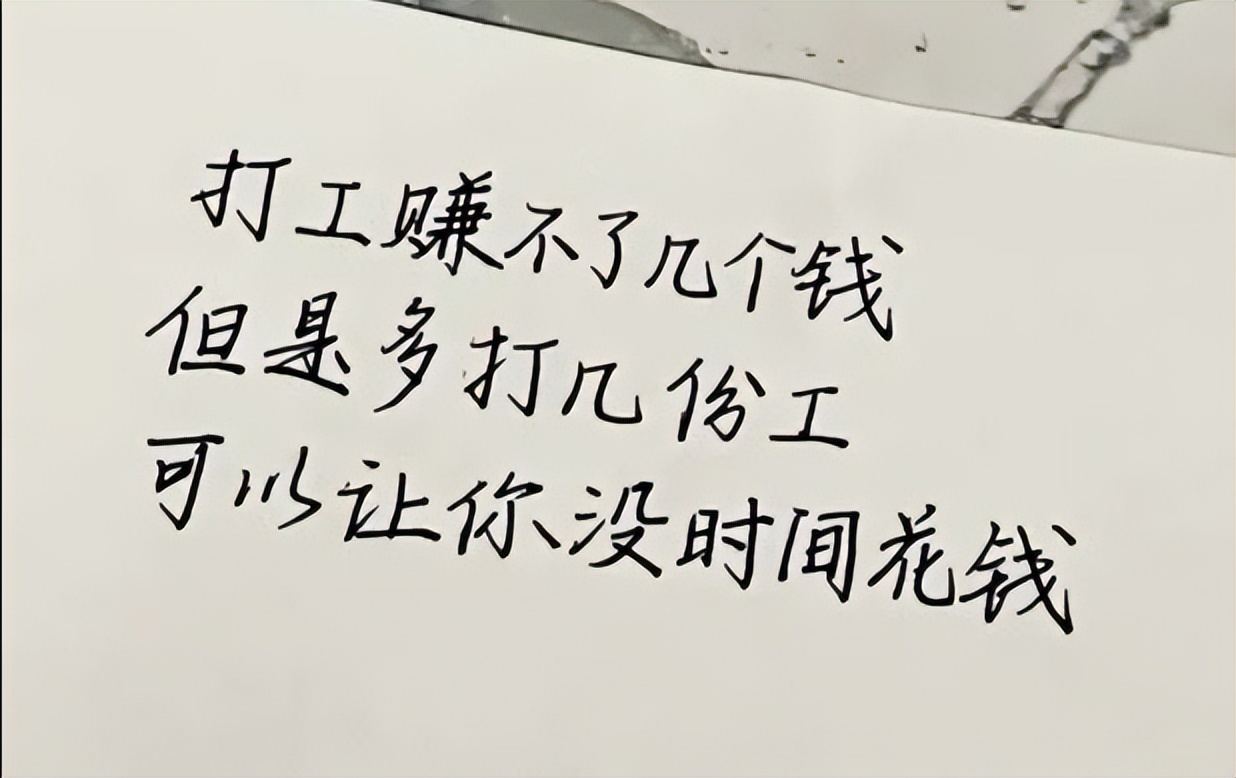 打工赚不了几个钱
但是多打几份工
可以让你没时间花钱